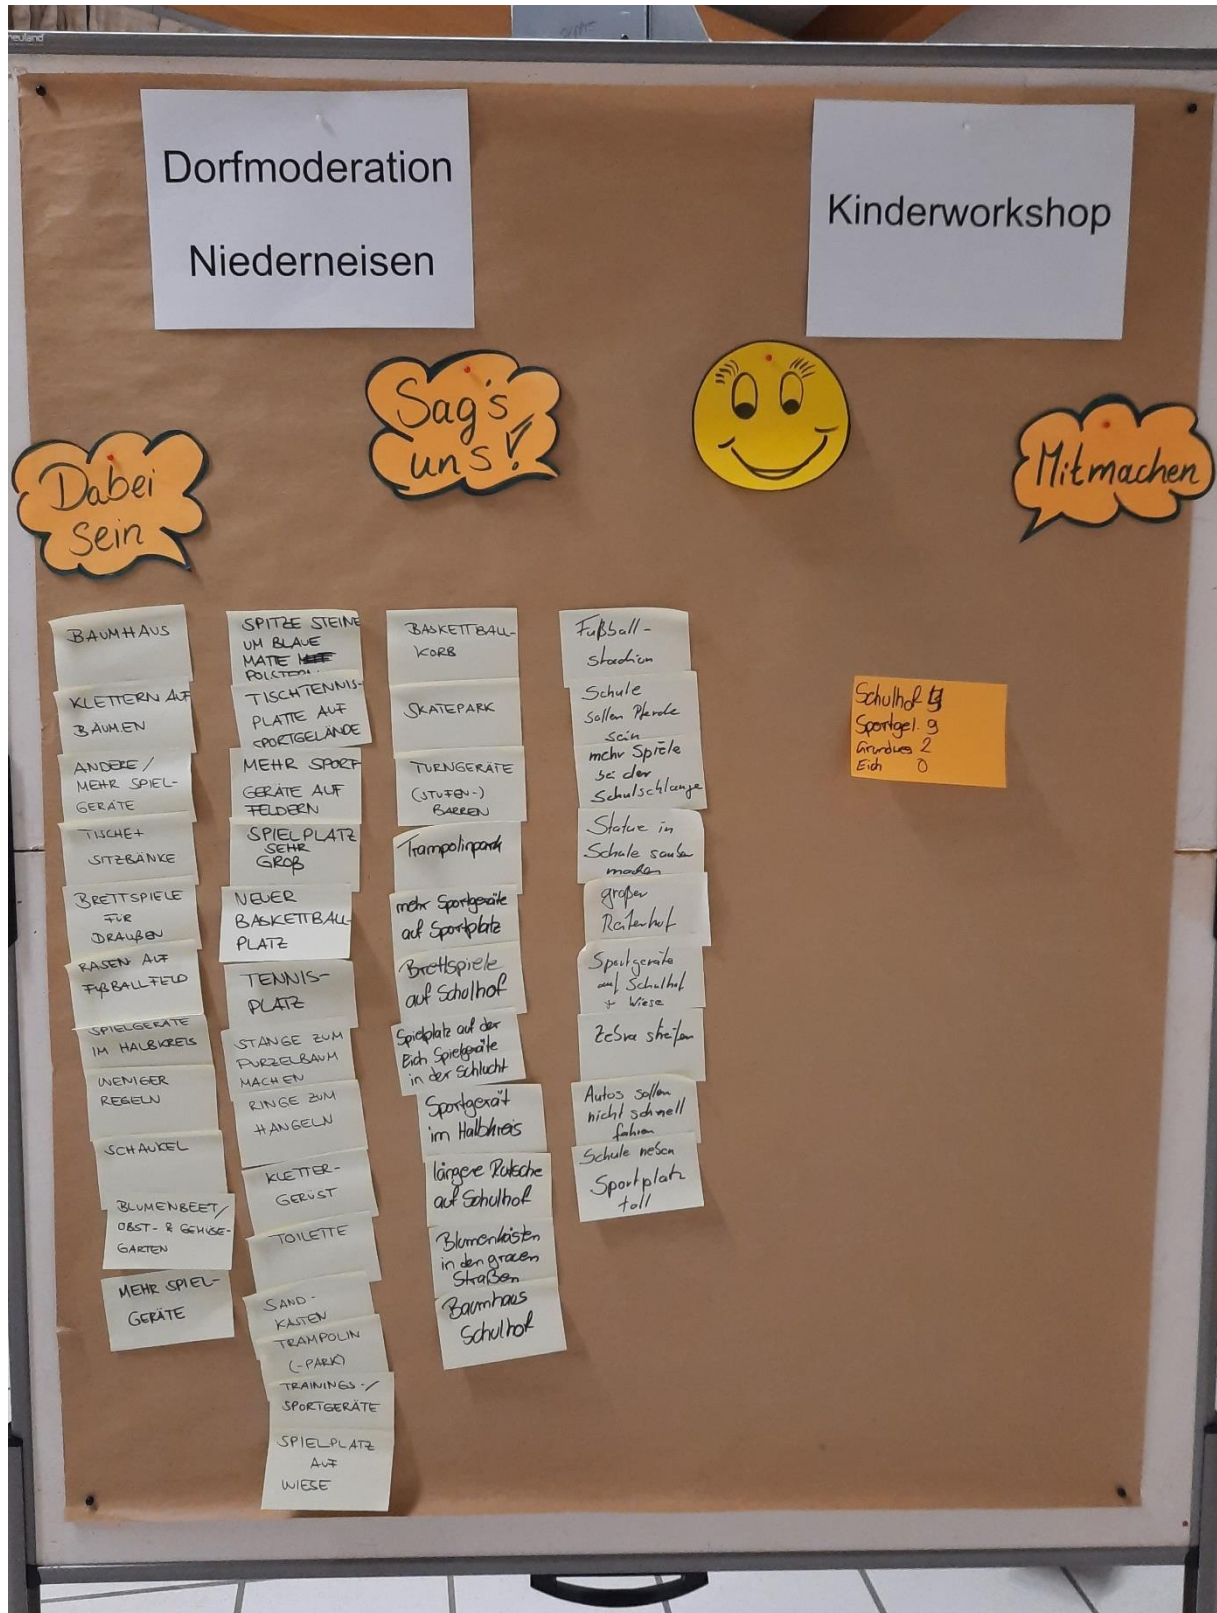 neuland
Dorfmoderation
Niederneisen
Kinderworkshop
Sag's
uns!
Dabei
sein
Mitmachen
BAUMHAUS
KLETTERN AUF
BÄUMEN
ANDERE /
MEHR SPIEL-
GERÄTE
TISCHE +
SITZBÄNKE
BRETTSPIELE
FÜR
DRAUẞEN
RASEN AUF
FUẞBALLFELD
SPIELGERÄTE
IM HALBKREIS
WENIGER
REGELN
SCHAUKEL
BLUMENBEET /
OBST- & GEMÜSE-
GARTEN
MEHR SPIEL-
GERÄTE
SPITZE STEINE
UM BLAUE
MATTE
POLSTERN
TISCHTENNIS-
PLATTE AUF
SPORTGELÄNDE
MEHR SPORT
GERÄTE AUF
FELDERN
SPIELPLATZ
SEHR
GROẞ
NEUER
BASKETTBALL-
PLATZ
TENNIS-
PLATZ
STANGE ZUM
PURZELBAUM
MACHEN
RINGE ZUM
HANGELN
KLETTER-
GERÜST
TOILETTE
SAND-
KASTEN
TRAMPOLIN
(-PARK)
TRAININGS-/
SPORTGERÄTE
SPIELPLATZ
AUF
WIESE
BASKETTBALL-
KORB
SKATEPARK
TURNGERÄTE
(STUFEN-)
BARREN
Trampolinpark
mehr Sportgeräte
auf Sportplatz
Brettspiele
auf Schulhof
Spielplatz auf der
Eich Spielgeräte
in der Schlucht
Sportgerät
im Halbkreis
längere Rutsche
auf Schulhof
Blumenkästen
in den grauen
Straßen
Baumhaus
Schulhof
Fußball-
stadion
Schule
sollen Pferde
sein
mehr Spiele
bei der
Schulschlange
Statue in
Schule sauber
machen
großer
Reiterhof
Sportgeräte
auf Schulhof
+ Wiese
Zebrastreifen
Autos sollen
nicht schnell
fahren
Schule neben
Sportplatz
toll
Schulhof
Sportgel. 9
Grundweg 2
Eich 0